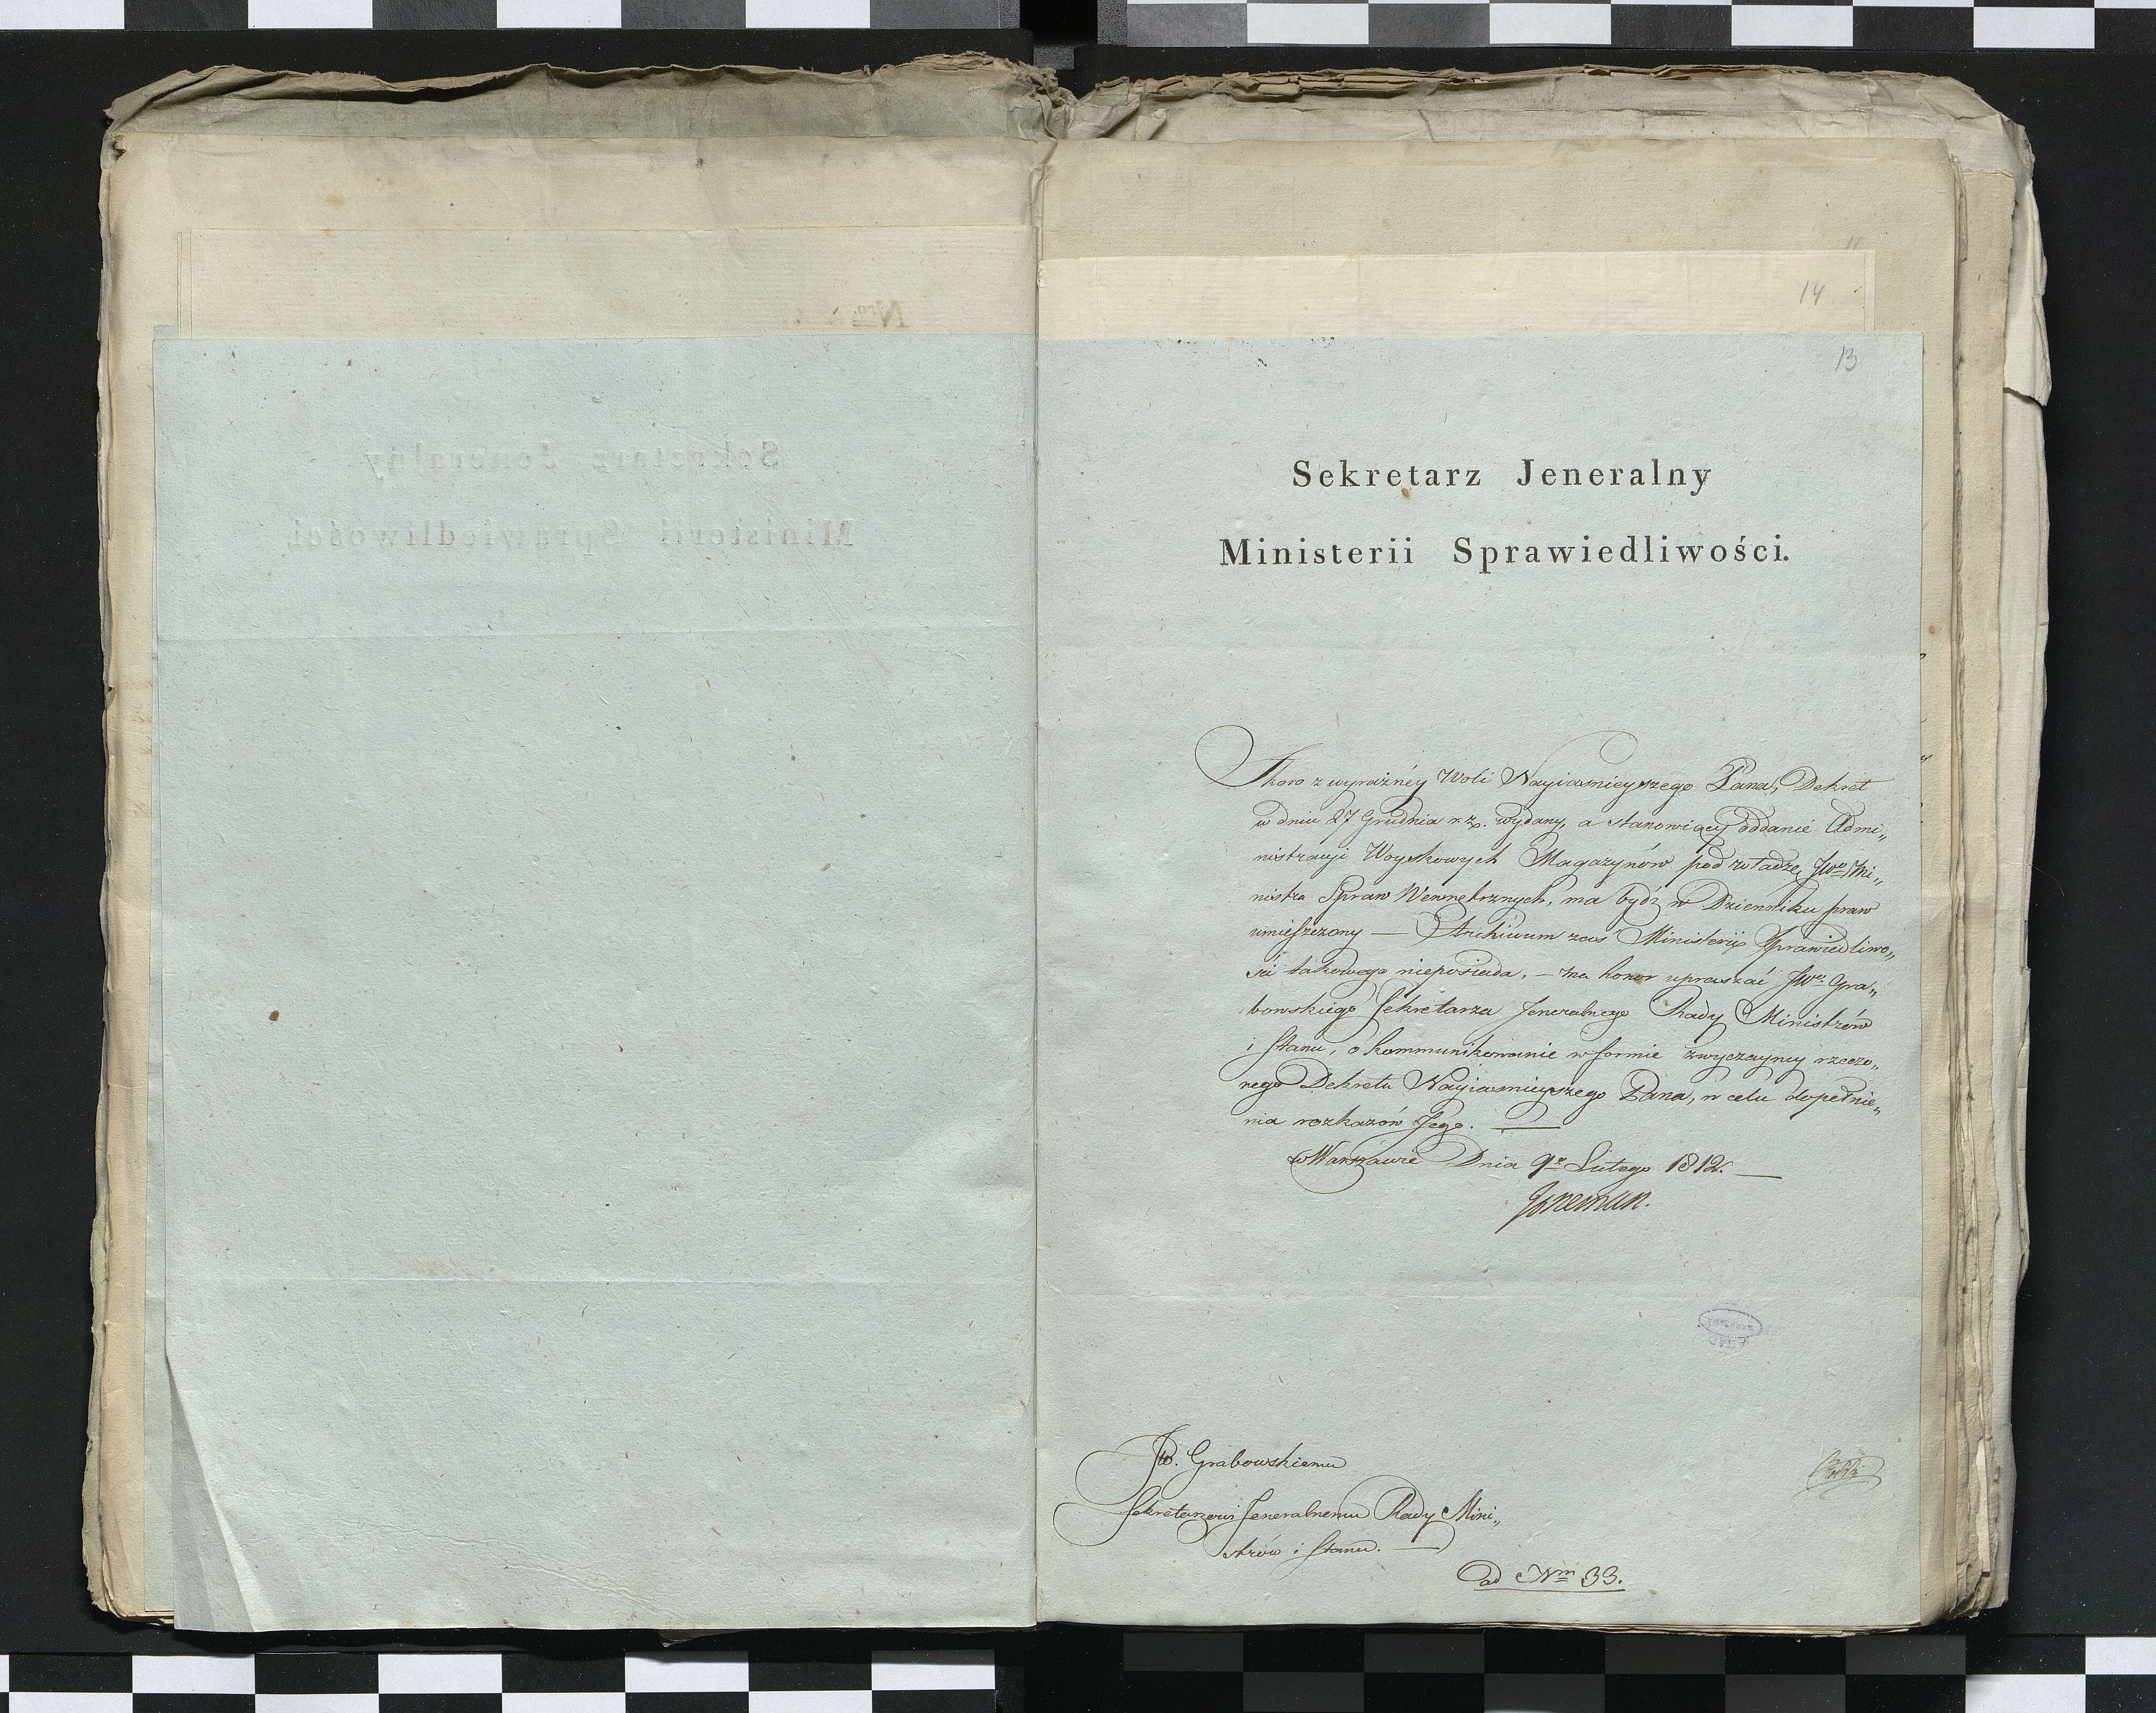 Nro.
14
13
Sekretarz Jeneralny
Ministerii Sprawiedliwości.
Skoro z wyraźnéy Woli Nayiasnieyszego Pana, Dekret
w dniu 27 Grudnia r. z. wydany, a stanowiący oddanie Admi„
nistracyi Woyskowych Magazynów pod władzę JWo Mi„
nistra Spraw Wewnętrznych, ma bydź w Dzienniku praw
umieszczony — Archiwum zaś Ministerii Sprawiedliwo„
ści takowego nieposiada, — ma honor upraszać JWo Gra„
bowskiego Sekretarza Jeneralnego Rady Ministrów
i Stanu, o kommunikowanie w formie zwyczayney rzeczo„
nego Dekretu Nayiasnieyszego Pana, w celu dopełnie„
nia rozkazów Jego. —
w Warszawie Dnia 9o Lutego 1812. —
JW. Grabowskiemu
Sekretarzowi Jeneralnemu Rady Mini„
strów i Stanu. —
ad Nrm 33.